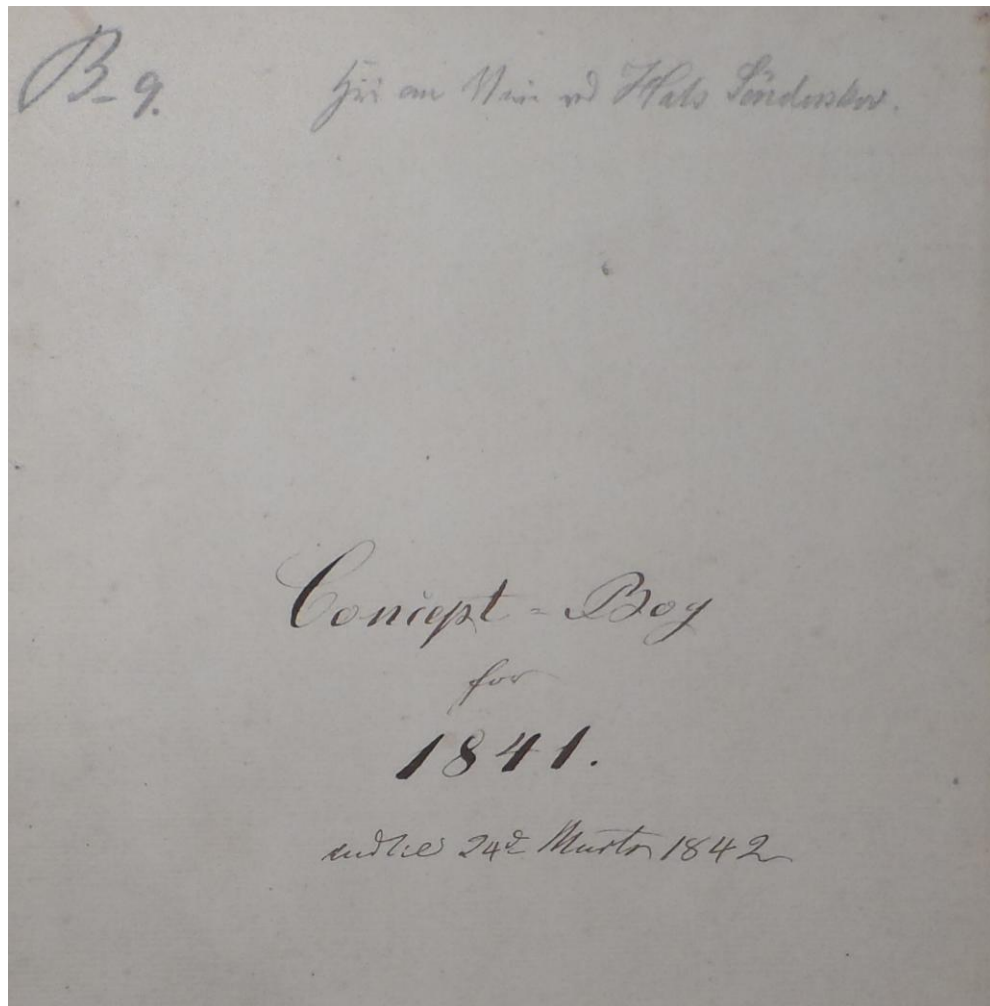 B-9.
Hals Sønderskov.
Concept-Bog
for
1841.
indtil 24de Marts 1842